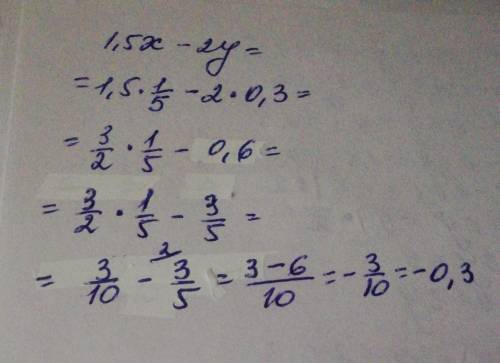 1,5x - 2y =
= 1,5 · 1/5 - 2 · 0,3 =
= 3/2 · 1/5 - 0,6 =
= 3/2 · 1/5 - 3/5 =
= 3/10 - ²3/5 = (3 - 6)/10 = - 3/10 = - 0,3